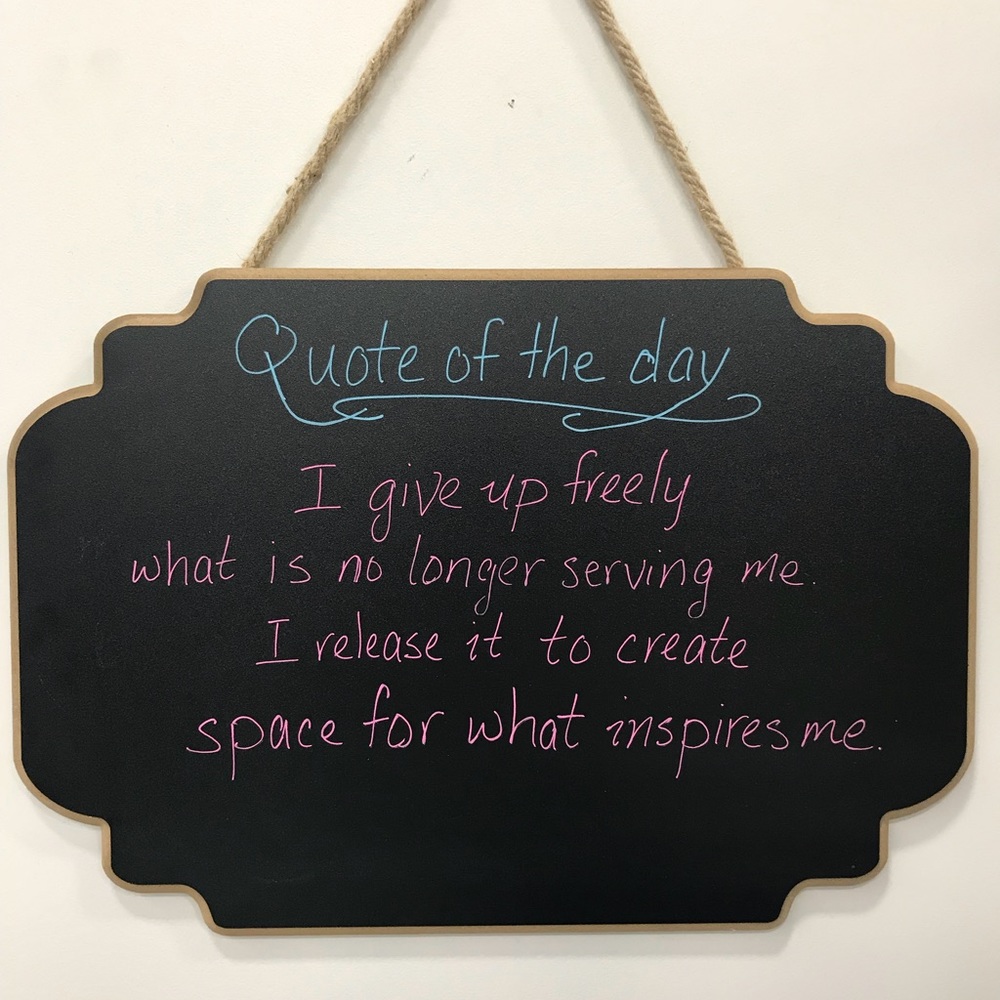 Quote of the day
I give up freely
what is no longer serving me.
I release it to create
space for what inspires me.